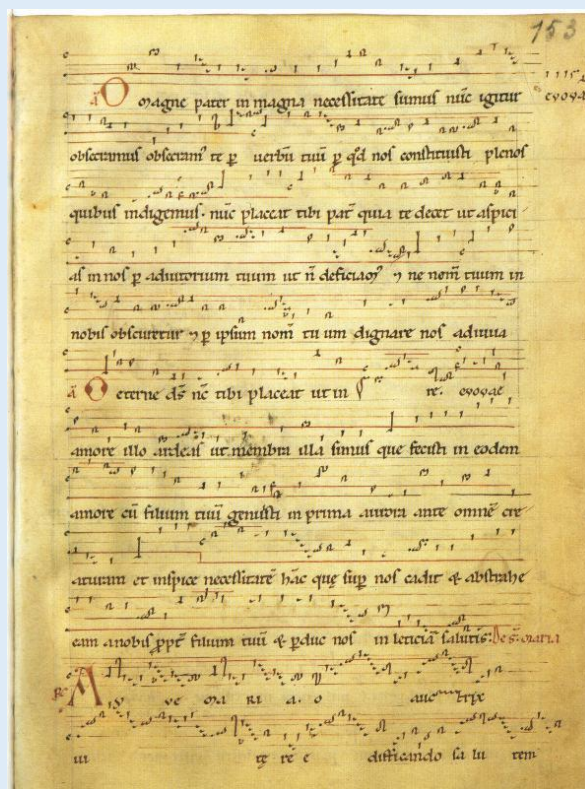 153
O magne pater in magna necessitate sumus nūc igitur euouae
obsecramus obsecram᷒ te ꝑ uerbū tuū ꝑ qd̄ nos constituisti plenos
quibus indigemus. nūc placeat tibi pat̄ quia te decet ut aspici
as in nos ꝑ adiutorium tuum ut n̄ deficiam᷒ ⁊ ne nom̄ tuum in
nobis obscuretur ⁊ ꝑ ipsum nom̄ tuum dignare nos adiuua
O eterne ds̄ nc̄ tibi placeat ut in re. euouae
amore illo ardeas ut membra illa simus que fecisti in eodem
amore cū filium tuū genuisti in prima aurora ante omnē cre
aturam et inspice necessitatē hāc quę suꝑ nos cadit & abstrahe
eam a nobis ꝓpt̄ filium tuū & ꝑduc nos in leticiā salutis. De s. maria
A ue maria o auctrix
ui tę re e dificando salutem